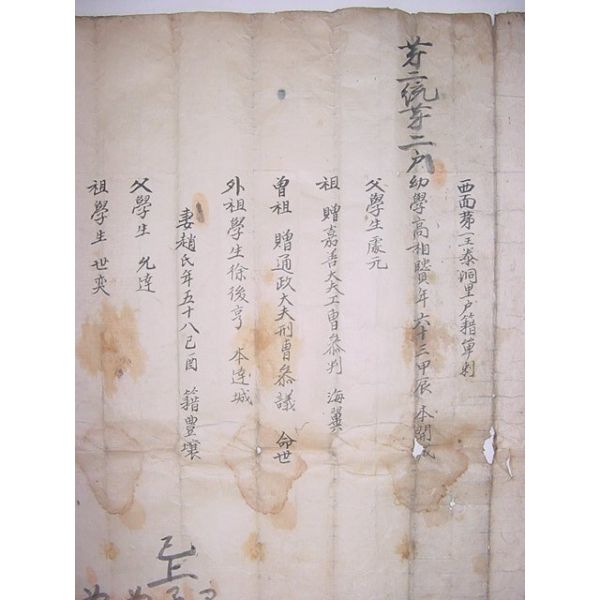 西面第一王泰洞里戶籍單刺
第二統第二戶
幼學高相 年六十三甲辰 本開城
父學生處元
祖 贈嘉善大夫工曹叅判 海翼
曾祖 贈通政大夫刑曹叅議 命世
外祖學生徐後亨 本達城
妻趙氏年五十八己酉 籍豊壤
父學生 允達
祖學生 世奕
已上